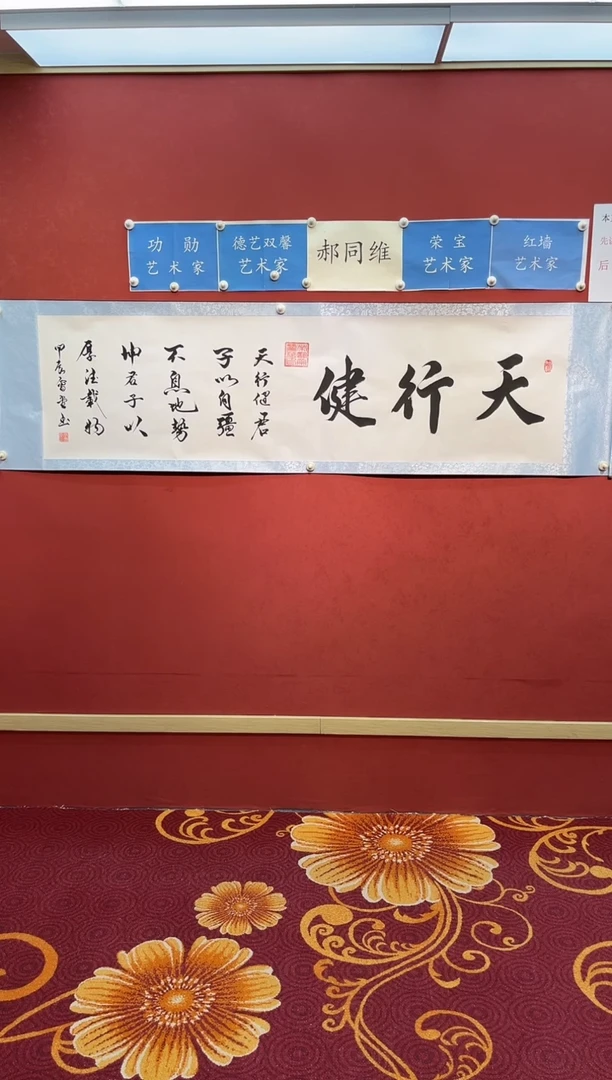 功勋
艺术家
德艺双馨
艺术家
郝同维
荣宝
艺术家
红墙
艺术家
本
先
后
天行健
天行健君
子以自彊
不息地勢
坤君子以
厚德載物
甲辰